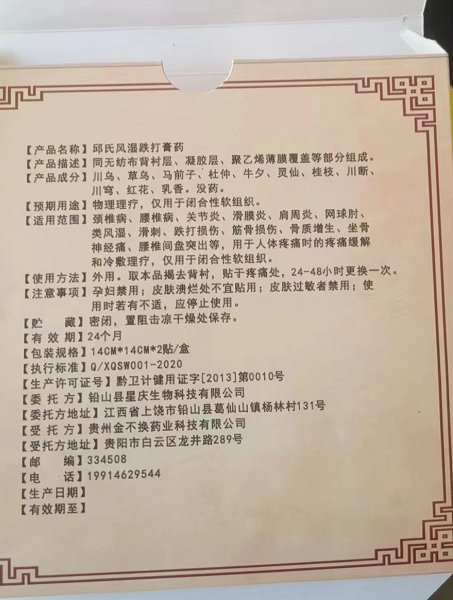 【产品名称】邱氏风湿跌打膏药
【产品描述】同无纺布背衬层、凝胶层、聚乙烯薄膜覆盖等部分组成。
【产品成分】川乌、草乌、马前子、杜仲、牛夕、灵仙、桂枝、川断、
川穹、红花、乳香。没药。
【预期用途】物理理疗，仅用于闭合性软组织。
【适用范围】颈椎病、腰椎病、关节炎、滑膜炎、肩周炎、网球肘、
类风湿、滑刺、跌打损伤、筋骨损伤、骨质增生、坐骨
神经痛、腰椎间盘突出等，用于人体疼痛时的疼痛缓解
和冷敷理疗，仅用于闭合性软组织。
【使用方法】外用。取本品揭去背衬，贴于疼痛处，24-48小时更换一次。
【注意事项】孕妇禁用；皮肤溃烂处不宜贴用；皮肤过敏者禁用；使
用时若有不适，应停止使用。
【贮 藏】密闭，置阻击凉干燥处保存。
【有 效 期】24个月
【包装规格】14CM*14CM*2贴/盒
【执行标准】Q/XQSW001-2020
【生产许可证号】黔卫计健用证字[2013]第0010号
【委 托 方】铅山县星庆生物科技有限公司
【委托方地址】江西省上饶市铅山县葛仙山镇杨林村131号
【受 托 方】贵州金不换药业科技有限公司
【受托方地址】贵阳市白云区龙井路289号
【邮 编】334508
【电 话】19914629544
【生产日期】
【有效期至】